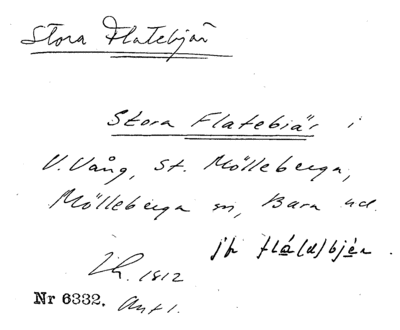 Stora Flatebjär
Stora Flatebiär i
V. Vång, St. Mölleberga,
Mölleberga sn, Bara hd.
jfr flá(d)bjér.
1812
Nr 6332.